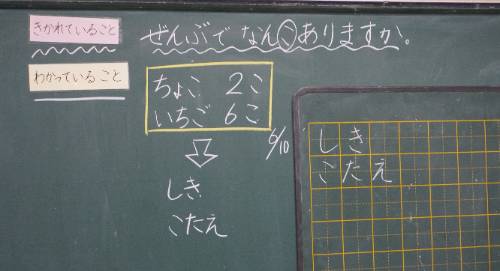 きかれていること
ぜんぶで なんこありますか。
わかっていること
ちょこ 2こ
いちご 6こ
6/10
しき
こたえ
しき
こたえ